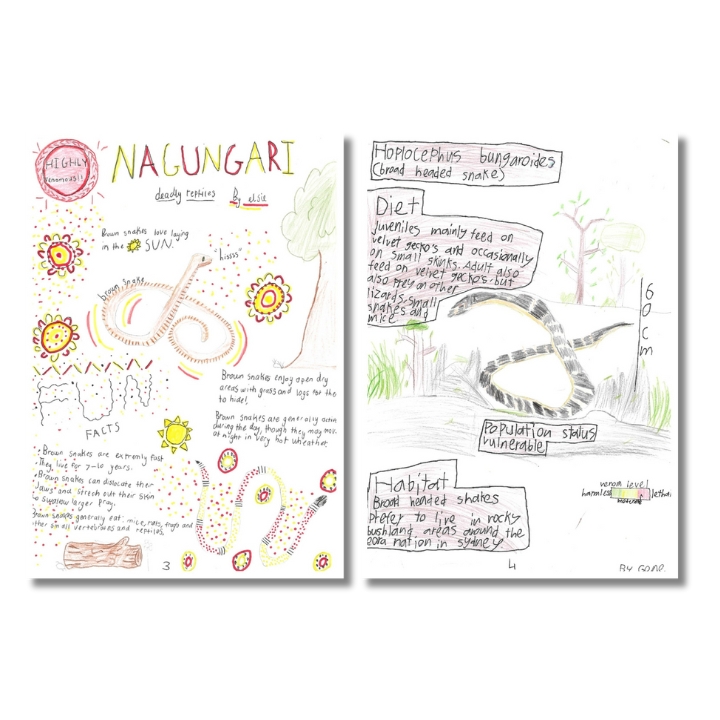 HIGHLY
venomous!!
NAGUNGARI
deadly reptiles By elsie
Brown snakes love laying
in the SUN.
"hisss"
brown snake
Brown snakes enjoy open dry
areas with grass and logs for the
to hide!
Brown snakes are generally activ
during the day, though they may mov
at night in very hot wheather
FACTS
Brown snakes are extremly fast
They live for 7-10 years.
Brown snakes can dislocate their
jaws and stretch out their skin
to swallow larger pray.
Brown snakes generally eat, mice, rats, frogs and
other small vertebraes and reptiles.
3
Hoplocephus bungaroides
(broad headed snake)
Diet
Juveniles mainly feed on
velvet gecko's and occasionally
on small skinks. Adult also
feed on velvet geckos but
also prey on other
lizards, small
snakes and
mice
60cm
Population status
vulnerable
Habitat
Broad headed snakes
Prefer to live in rocky
bushland areas around the
eora nation in sydney.
venom level
harmless lethal
4
BY